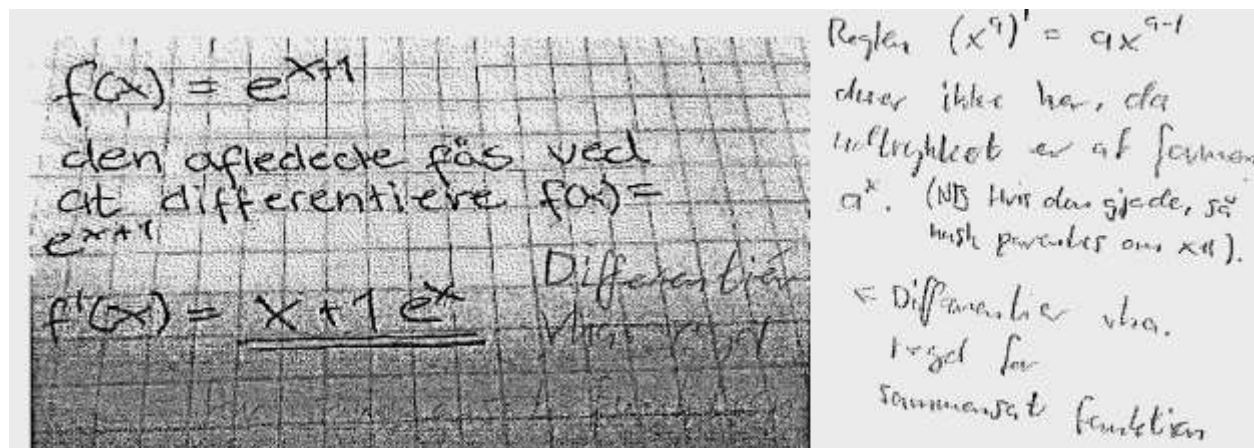 f(x) = e^{x+1}
den afledede fås ved
at differentiere f(x) =
e^{x+1}
f'(x) = x + 1 e^x
Differentiér
Reglen (x^a)' = ax^{a-1}
duer ikke her, da
er af formen
a^x. (NB Hvis den gjade, så
husk parentes om x+1).
← Differentier vha.
regel for
sammensat funktion